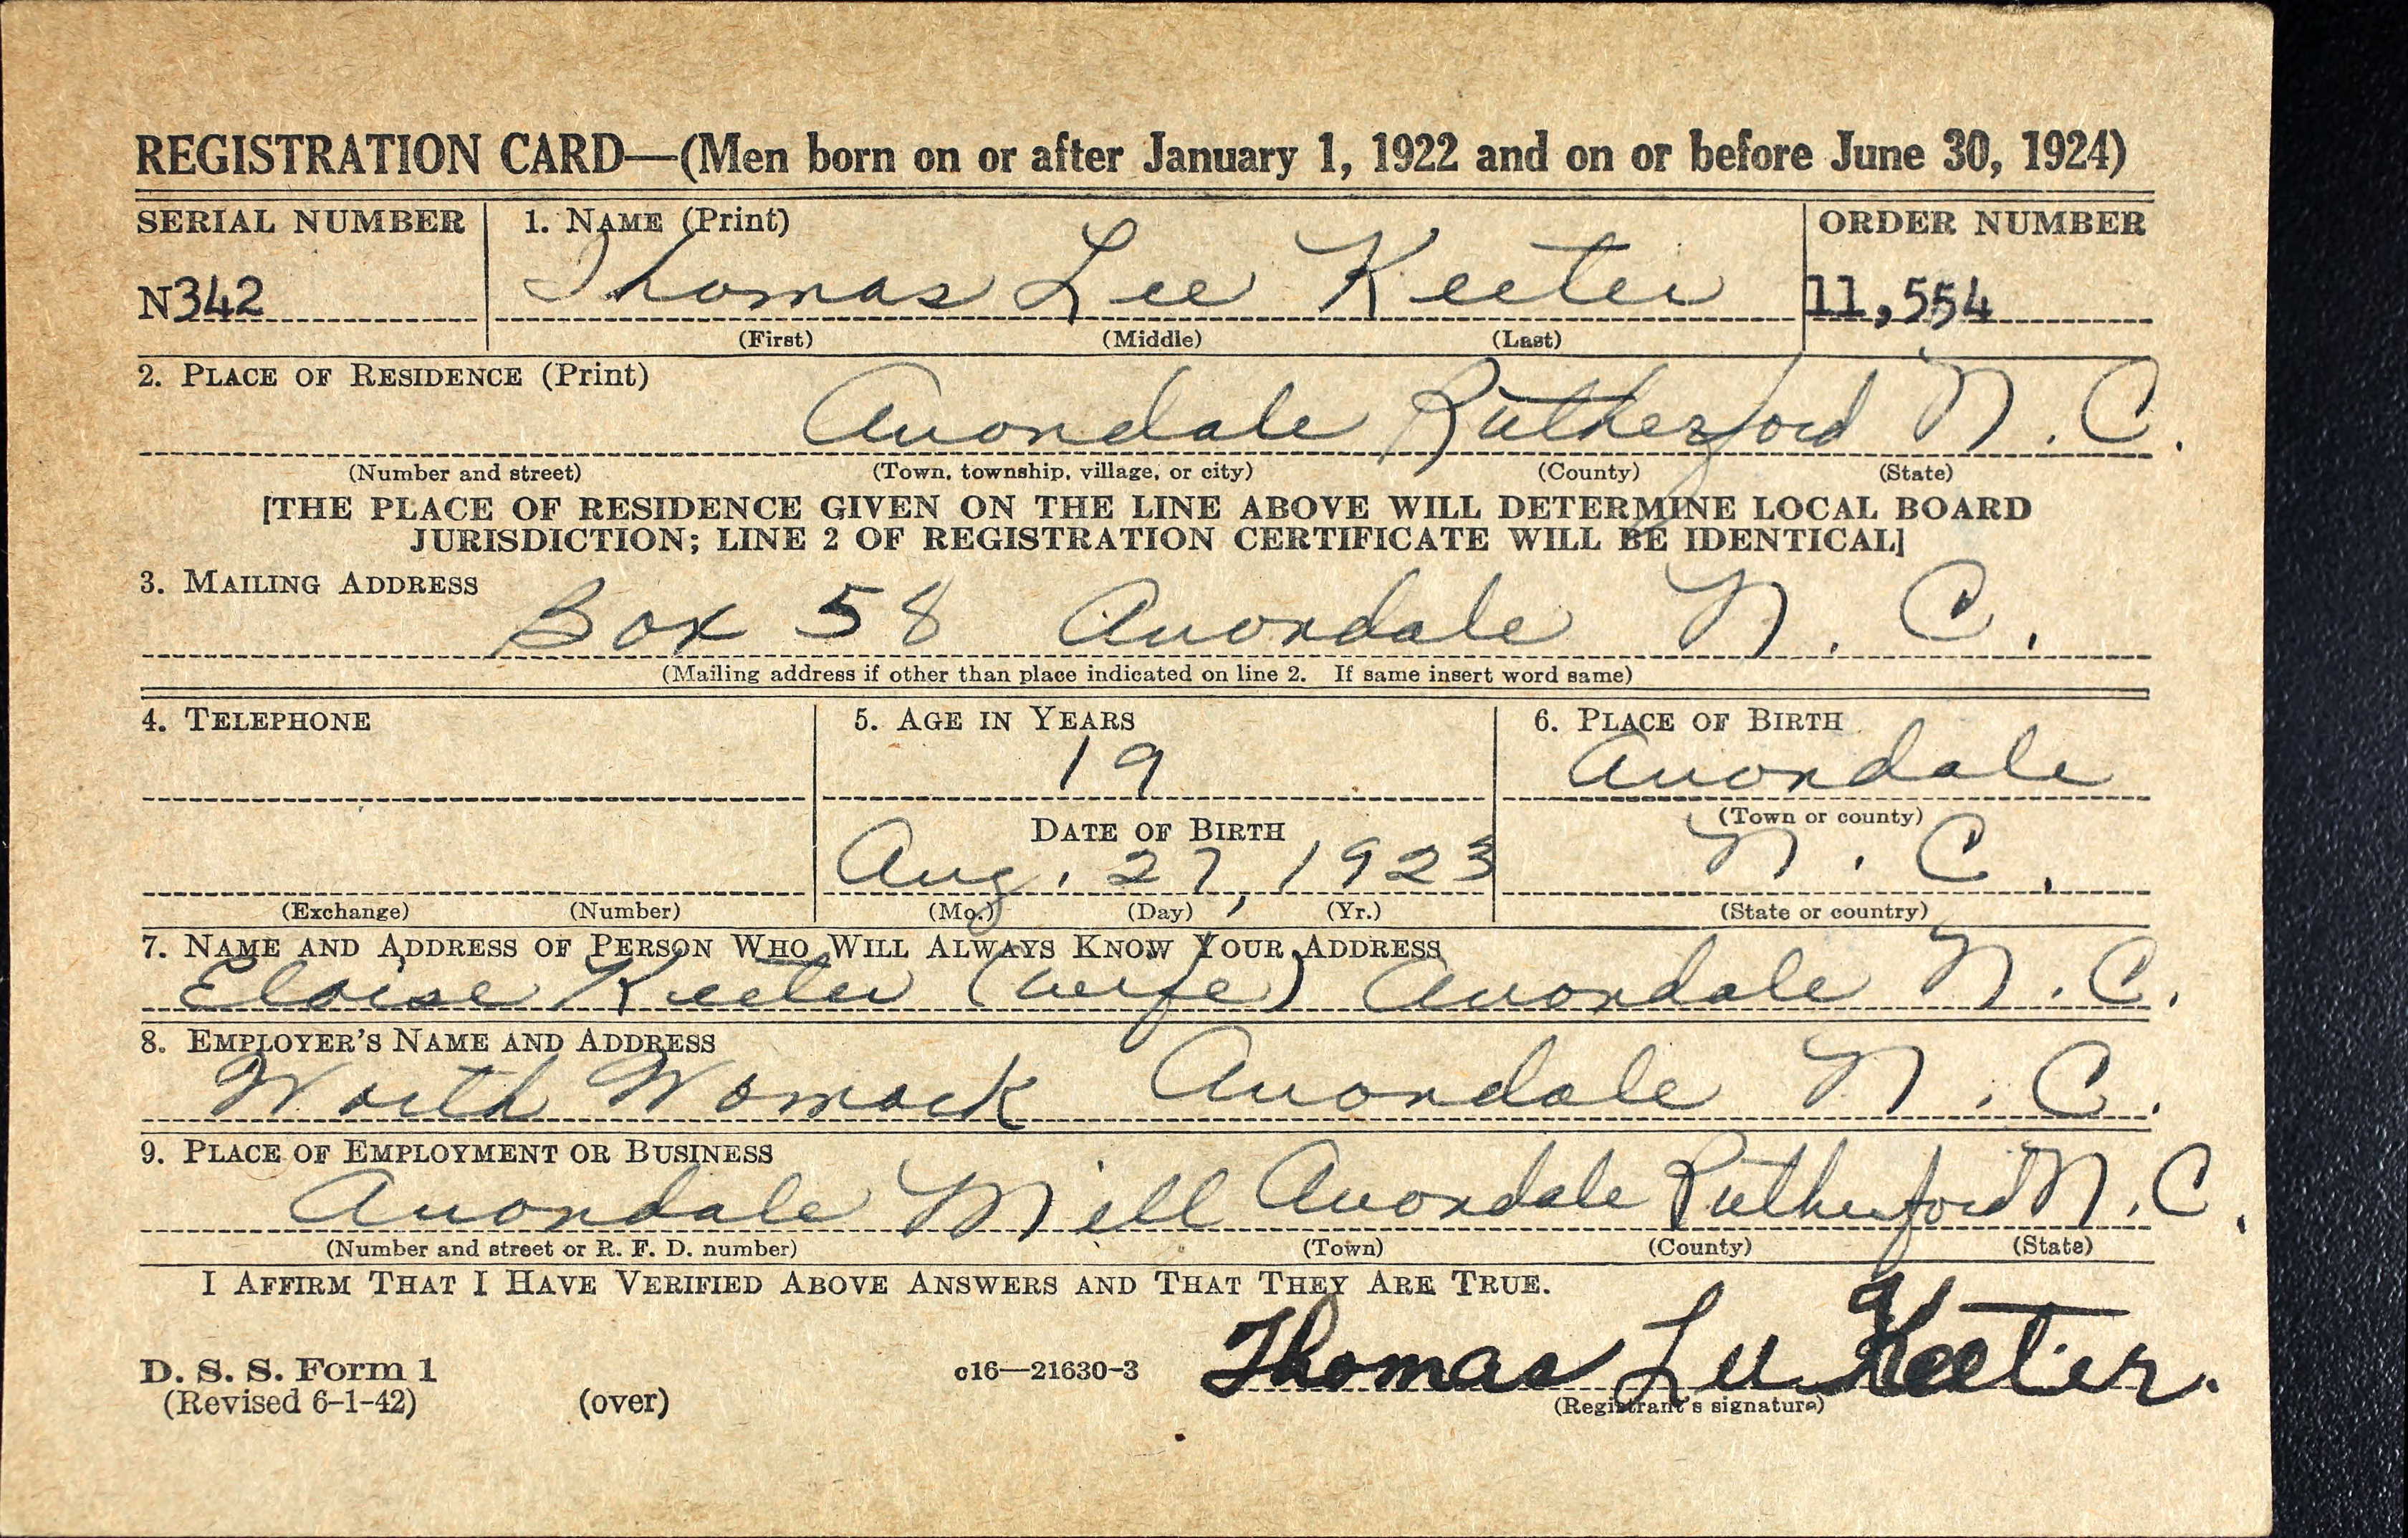 REGISTRATION CARD—(Men born on or after January 1, 1922 and on or before June 30, 1924)
SERIAL NUMBER 1. NAME (Print) ORDER NUMBER
N342 Thomas Lee Keeter 11,554
(First) (Middle) (Last)
2. PLACE OF RESIDENCE (Print)
Avondale Rutherford N.C.
(Number and street) (Town, township, village, or city) (County) (State)
[THE PLACE OF RESIDENCE GIVEN ON THE LINE ABOVE WILL DETERMINE LOCAL BOARD
JURISDICTION; LINE 2 OF REGISTRATION CERTIFICATE WILL BE IDENTICAL]
3. MAILING ADDRESS
Box 58 Avondale N. C.
(Mailing address if other than place indicated on line 2. If same insert word same)
4. TELEPHONE 5. AGE IN YEARS 6. PLACE OF BIRTH
19 Avondale
(Town or county)
DATE OF BIRTH
Aug. 27, 1923 N. C.
(Exchange) (Number) (Mo.) (Day) (Yr.) (State or country)
7. NAME AND ADDRESS OF PERSON WHO WILL ALWAYS KNOW YOUR ADDRESS
Eloise Keeter (wife) Avondale N.C.
8. EMPLOYER'S NAME AND ADDRESS
Worth Womack Avondale N.C.
9. PLACE OF EMPLOYMENT OR BUSINESS
Avondale Mill Avondale Rutherford N.C.
(Number and street or R. F. D. number) (Town) (County) (State)
I AFFIRM THAT I HAVE VERIFIED ABOVE ANSWERS AND THAT THEY ARE TRUE.
D. S. S. Form 1 c16—21630-3 Thomas Lee Keeter.
(Revised 6-1-42) (over) (Registrant's signature)